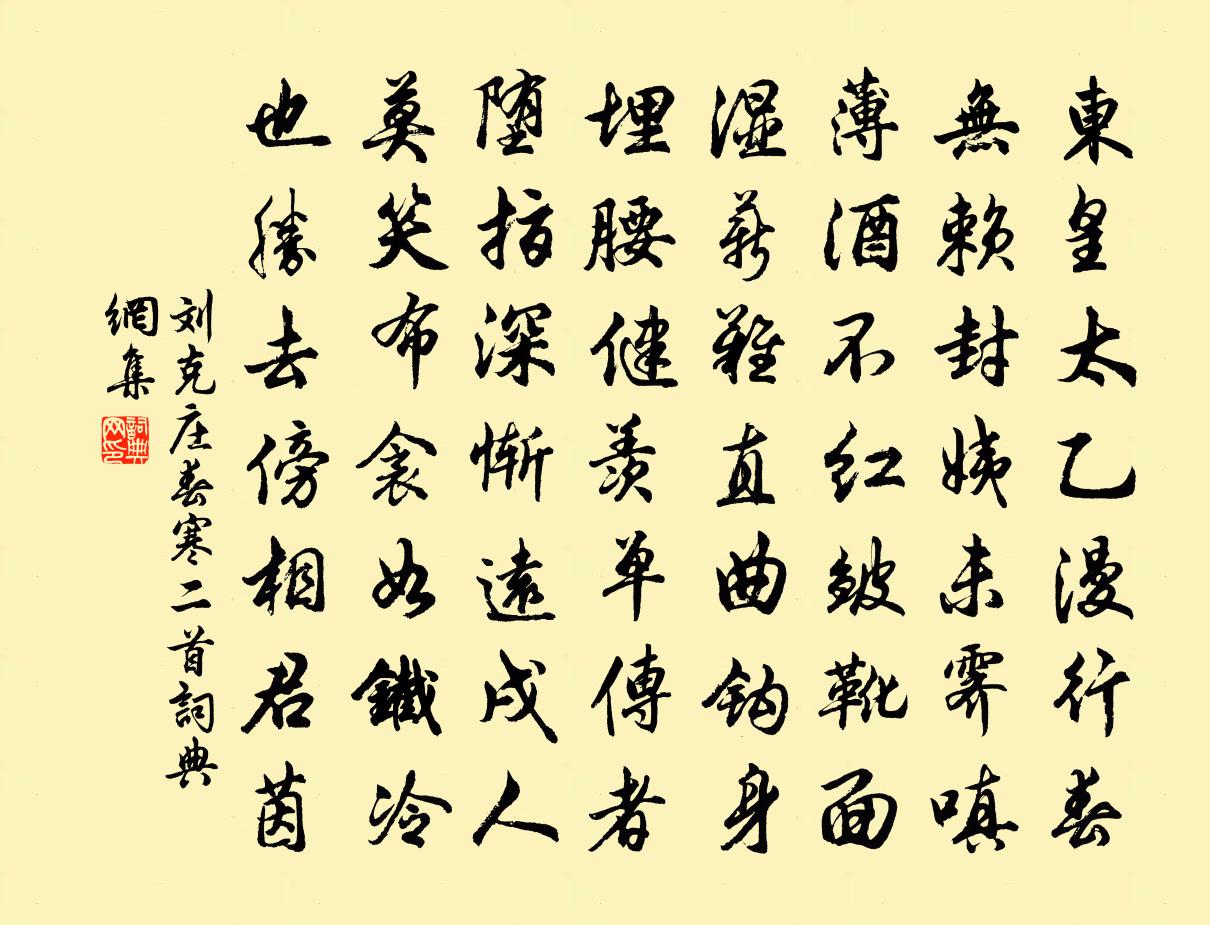 東皇太乙漫行春
無賴封姨未霽嗔
薄酒不紅皴靴面
湿薪難直曲鈎身
埋腰健羨單傳者
堕指深慚遠戍人
莫笑布衾如鐵冷
也勝去傍相君茵
刘克庄春寒二首詞典
網集
詞典網印